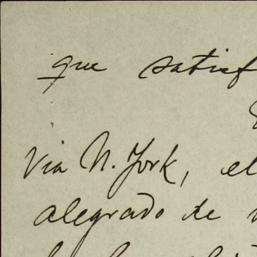 que satisf
Via N. York, el
alegrado de